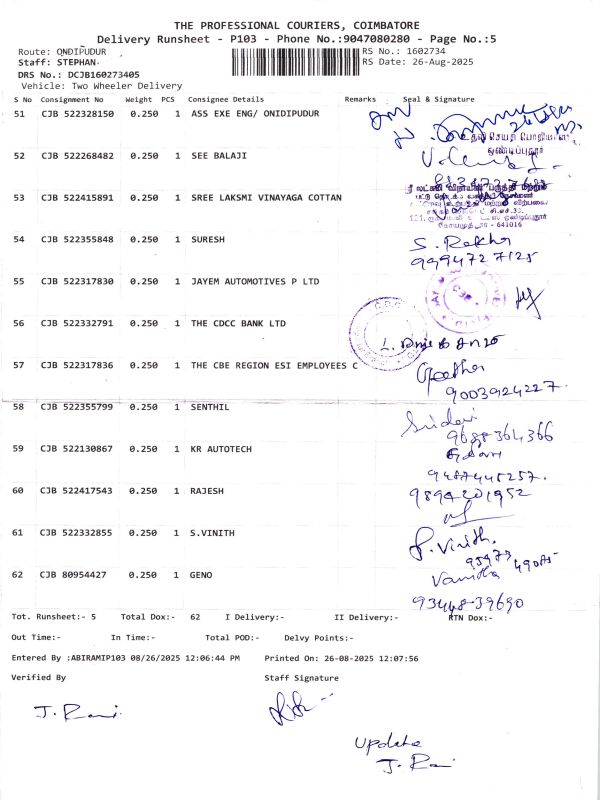 THE PROFESSIONAL COURIERS, COIMBATORE
Delivery Runsheet - P103 - Phone No.:9047080280 - Page No.:5
Route: ONDIPUDUR RS No.: 1602734
Staff: STEPHAN RS Date: 26-Aug-2025
DRS No.: DCJB160273405
Vehicle: Two Wheeler Delivery
S No Consignment No Weight PCS Consignee Details Remarks Seal & Signature
51 CJB 522328150 0.250 1 ASS EXE ENG/ ONIDIPUDUR
ஒண்டிப்புதூர்
52 CJB 522268482 0.250 1 SEE BALAJI
53 CJB 522415891 0.250 1 SREE LAKSMI VINAYAGA COTTAN
ஸ்ரீ லட்சுமி விநாயகா பருத்தி மற்றும்
கோயமுத்தூர் - 641016
54 CJB 522355848 0.250 1 SURESH S. Rekha
9994727125
55 CJB 522317830 0.250 1 JAYEM AUTOMOTIVES P LTD
56 CJB 522332791 0.250 1 THE CDCC BANK LTD
57 CJB 522317836 0.250 1 THE CBE REGION ESI EMPLOYEES C Geetha
9003924227
58 CJB 522355799 0.250 1 SENTHIL Sridevi
9688364366
59 CJB 522130867 0.250 1 KR AUTOTECH
9487445257.
60 CJB 522417543 0.250 1 RAJESH 9894201952
61 CJB 522332855 0.250 1 S.VINITH P. Vinith.
95973 49085
62 CJB 80954427 0.250 1 GENO Vanitha
93448-39690
Tot. Runsheet:- 5 Total Dox:- 62 I Delivery:- II Delivery:- RTN Dox:-
Out Time:- In Time:- Total POD:- Delvy Points:-
Entered By :ABIRAMIP103 08/26/2025 12:06:44 PM Printed On: 26-08-2025 12:07:56
Verified By Staff Signature
J. Rani
Update
J. Rani